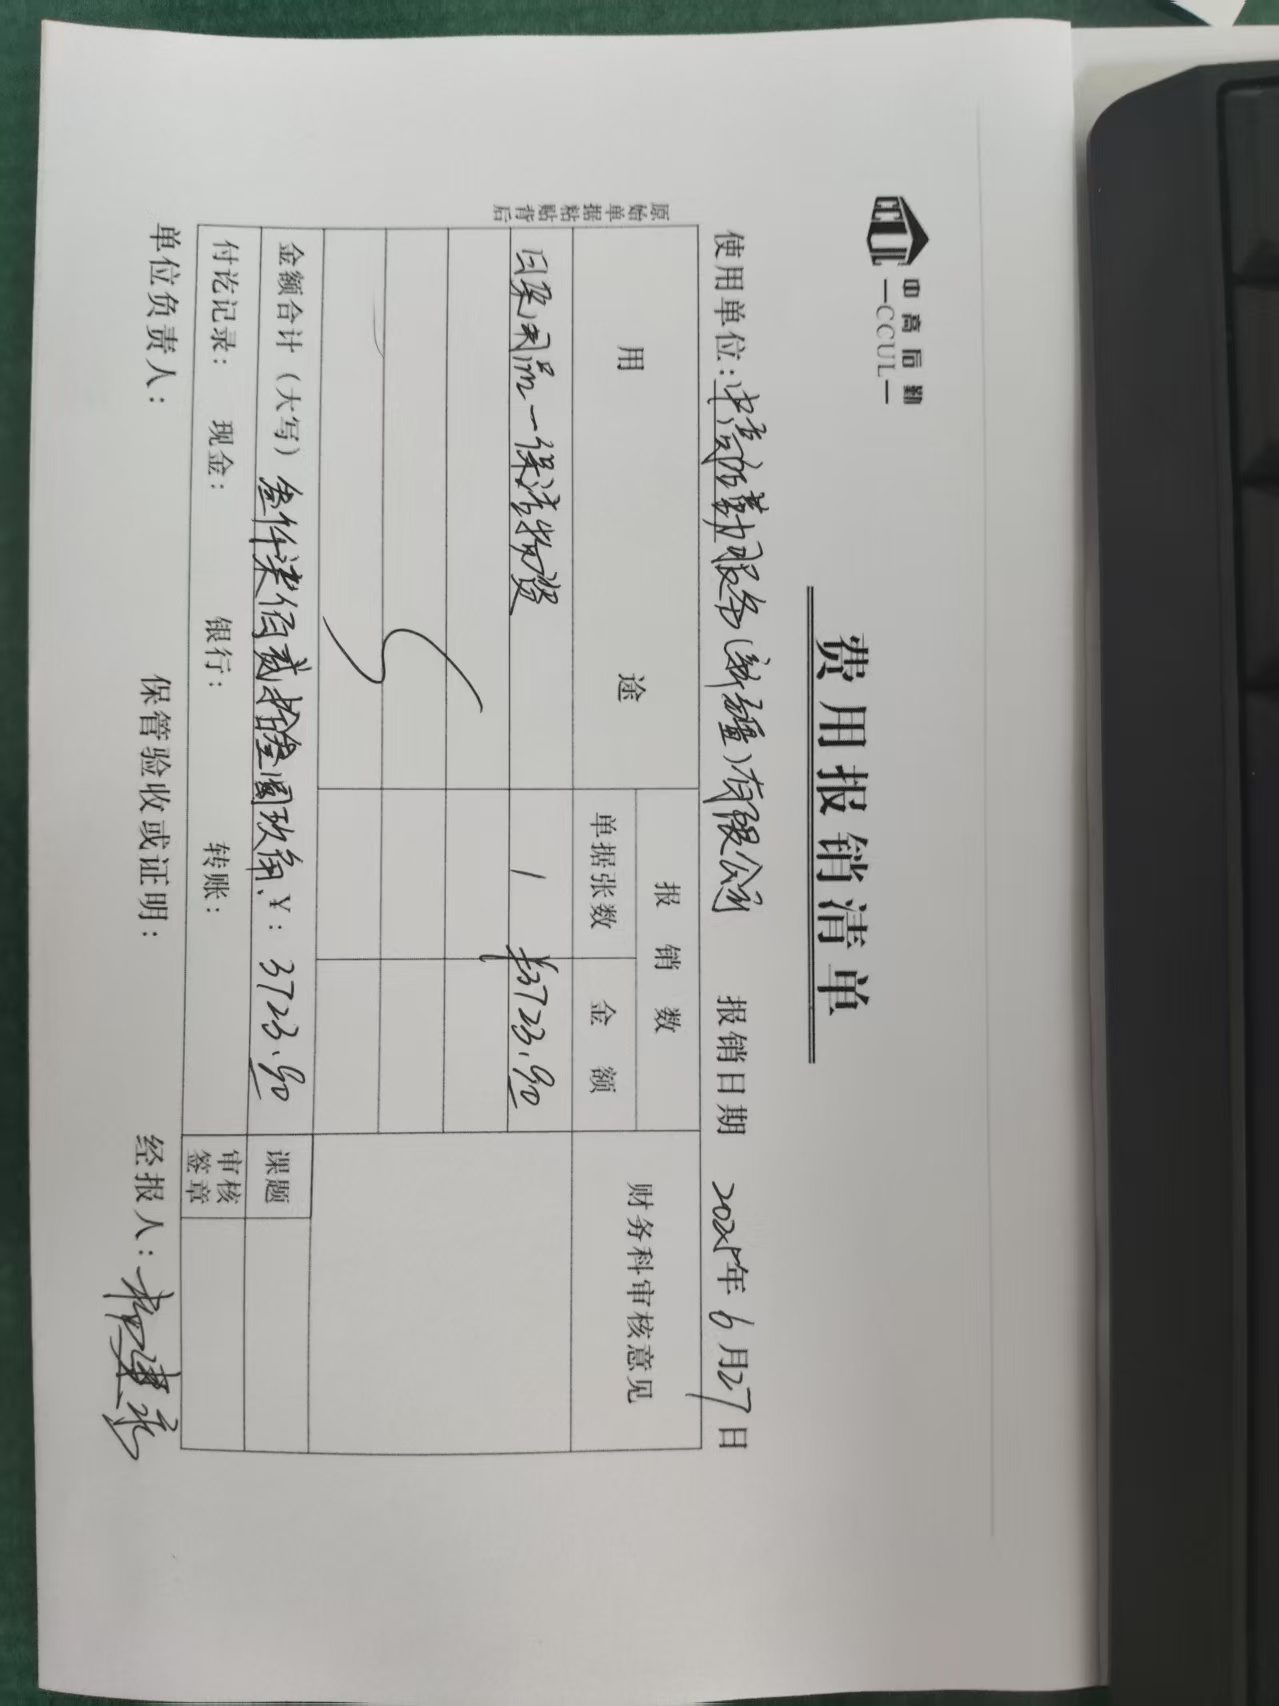 中高后勤
—CCUL—
费用报销清单
使用单位：中高后勤服务（新疆）有限公司 报销日期 2025年6月27日
原始单据粘贴背后
用 途 报 销 数 财务科审核意见
单据张数 金 额
日杂用品一保洁物资 1 ¥3723.90
金额合计（大写）叁仟柒佰贰拾叁圆玖角、¥：3723.90 课题
付讫记录： 现金： 银行： 转账： 审核签章
单位负责人： 保管验收或证明： 经报人：